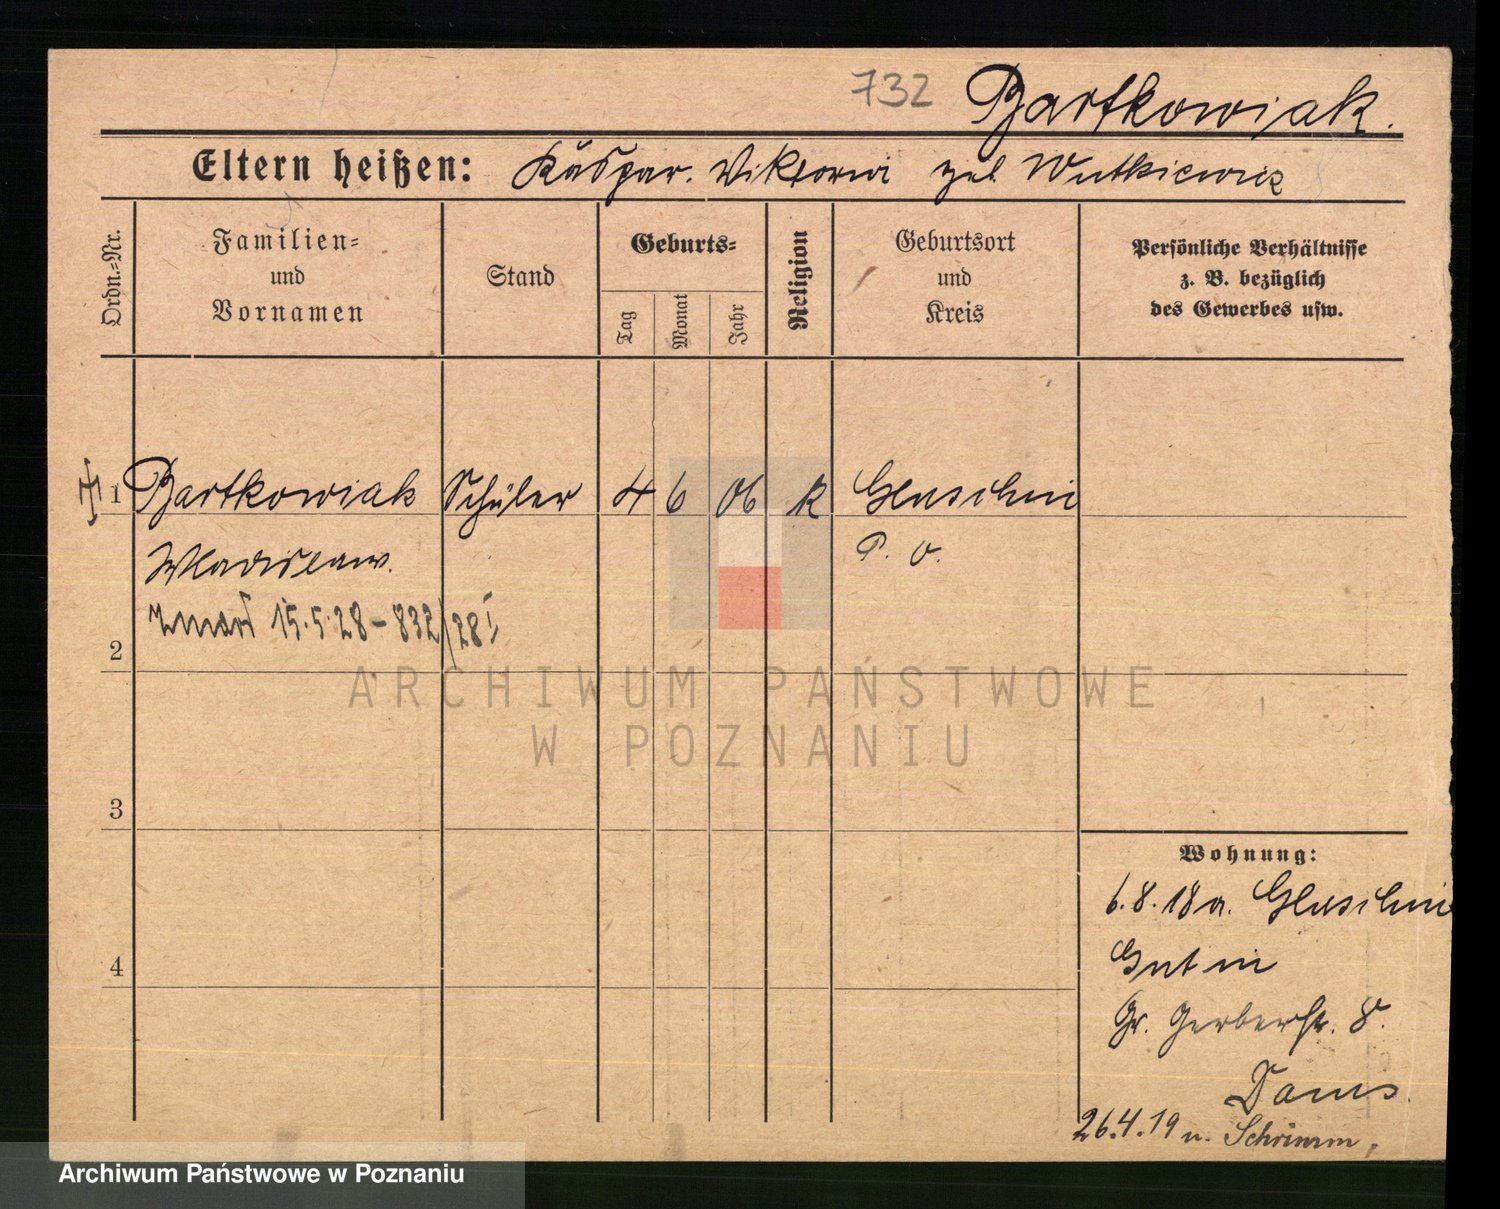 732 Bartkowiak.
Eltern heißen: Kaspar. Viktoria geb. Wutkiewicz
Ordn.-Nr.
Familien-
und
Vornamen
Stand
Geburts-
Tag
Monat
Jahr
Religion
Geburtsort
und
Kreis
Persönliche Verhältnisse
z. B. bezüglich
des Gewerbes usw.
1 Bartkowiak Schüler 4 6 06 k Gluschin
P. O.
Wladislaw.
zmarł 15.5.28-832/28 I
2
ARCHIWUM PAŃSTWOWE
W POZNANIU
3
Wohnung:
6.8.18 a. Gluschin
Gut in
4
Gr. Gerberstr. 8.
26.4.19 n. Schrimm,
Archiwum Państwowe w Poznaniu